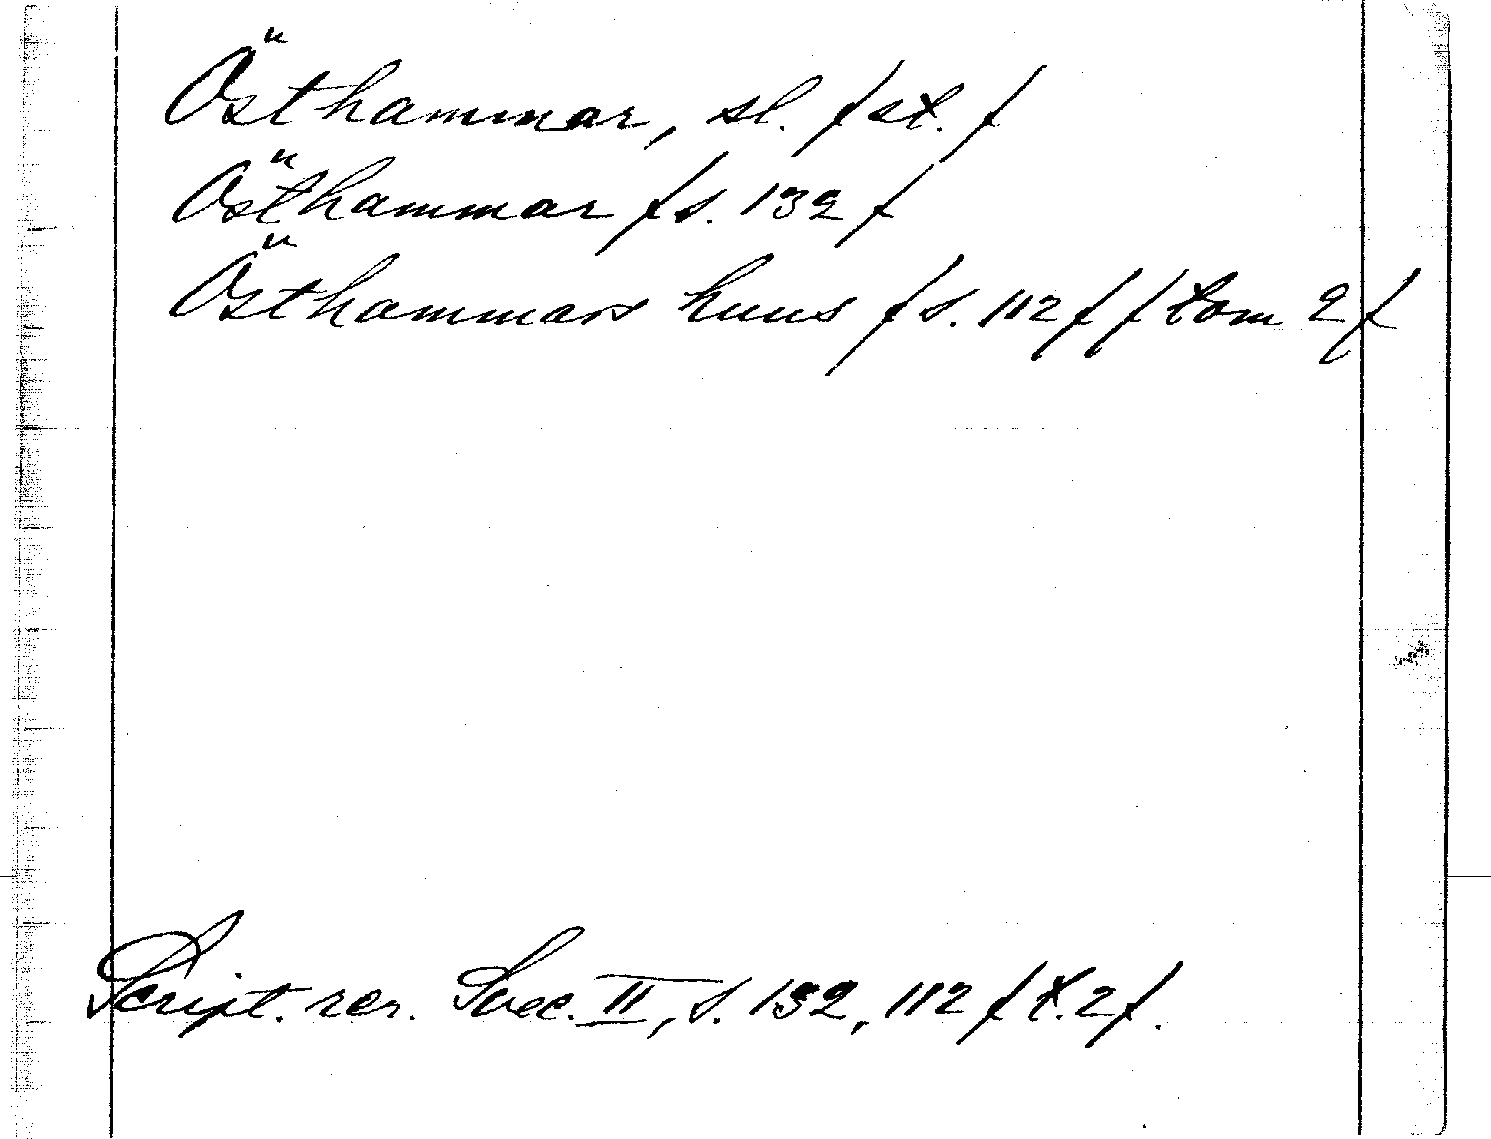 Östhammar, sl. /st./
Östhammar /s. 132/
Östhammars huus /s. 112/ /tom 2/
Script. rer. Svec. II, s. 132, 112 /t. 2/.